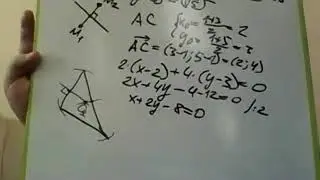 M₂
M₁
AC
x₀ = 1+3/2 = 2
y₀ = 1+5/2
AC = (3-1; 5-1) = (2; 4)
2(x-2)+4·(y-3)=0
2x+4y-4-12=0 /:2
x+2y-8=0